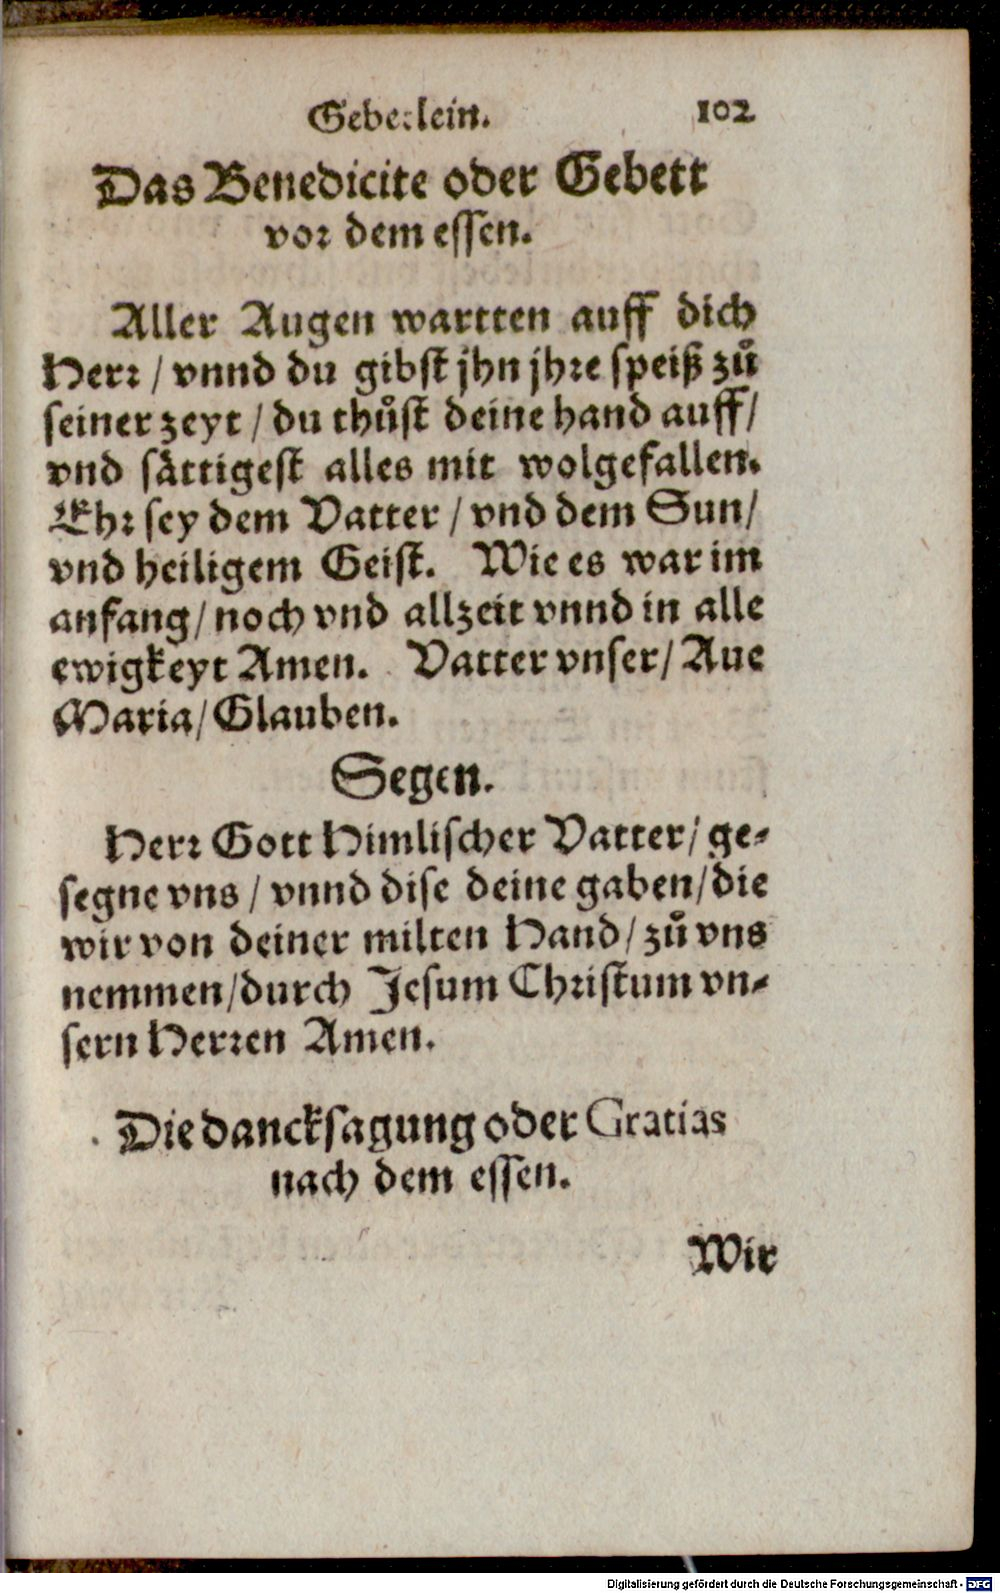 Gebetlein. 102
Das Benedicite oder Gebett
vor dem essen.
Aller Augen wartten auff dich
Herr / vnnd du gibst jhn jhre speiß zů
seiner zeyt / du thůst deine hand auff /
vnd sättigest alles mit wolgefallen.
Ehr sey dem Vatter / vnd dem Sun /
vnd heiligem Geist. Wie es war im
anfang / noch vnd allzeit vnnd in alle
ewigkeyt Amen. Vatter vnser / Aue
Maria / Glauben.
Segen.
Herr Gott Himlischer Vatter / ge-
segne vns / vnnd dise deine gaben / die
wir von deiner milten Hand / zů vns
nemmen / durch Jesum Christum vn-
sern Herren Amen.
Die dancksagung oder Gratias
nach dem essen.
Wir
Digitalisierung gefördert durch die Deutsche Forschungsgemeinschaft - DFG